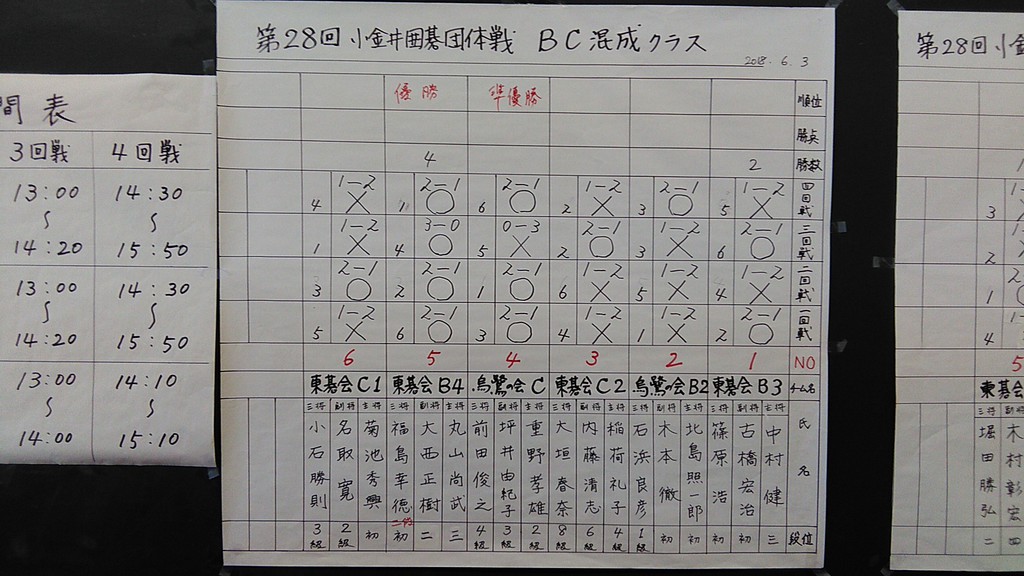 間表
3回戦 4回戦
13:00 14:30
14:20 15:50
13:00 14:30
14:20 15:50
13:00 14:10
14:00 15:10
第28回小金井囲碁団体戦 BC混成クラス
2018.6.3
優勝 準優勝 順位
勝点
4 2 勝数
1-2 2-1 2-1 1-2 2-1 1-2 四回戦
4 × 1 ○ 6 ○ 2 × 3 ○ 5 ×
1-2 3-0 0-3 2-1 1-2 2-1 三回戦
1 × 4 ○ 5 × 2 ○ 3 × 6 ○
2-1 2-1 2-1 1-2 1-2 1-2 二回戦
3 ○ 2 ○ 1 ○ 6 × 5 × 4 ×
1-2 2-1 2-1 1-2 1-2 2-1 一回戦
5 × 6 ○ 3 ○ 4 × 1 × 2 ○
6 5 4 3 2 1 NO
東碁会C1 東碁会B4 烏鷺の会C 東碁会C2 烏鷺の会B2 東碁会B3 チーム名
三将 副将 主将 三将 副将 主将 三将 副将 主将 三将 副将 主将 三将 副将 主将 三将 副将 主将
氏名
中村健
古橋宏治
篠原浩
北島照一郎
木本徹
石浜良彦
稲荷礼子
内藤清志
大垣春奈
重野孝雄
坪井由紀子
前田俊之
丸山尚武
大西正樹
福島幸徳
菊池秀興
名取寛
小石勝則
3級 2級 初 初 二 三 4級 3級 2級 8級 6級 4級 1級 初 初 初 初 三 段位
第28回小金
3
2
1
4
5
東碁会
三将 副将
木村彰宏
堀田勝弘
二 四